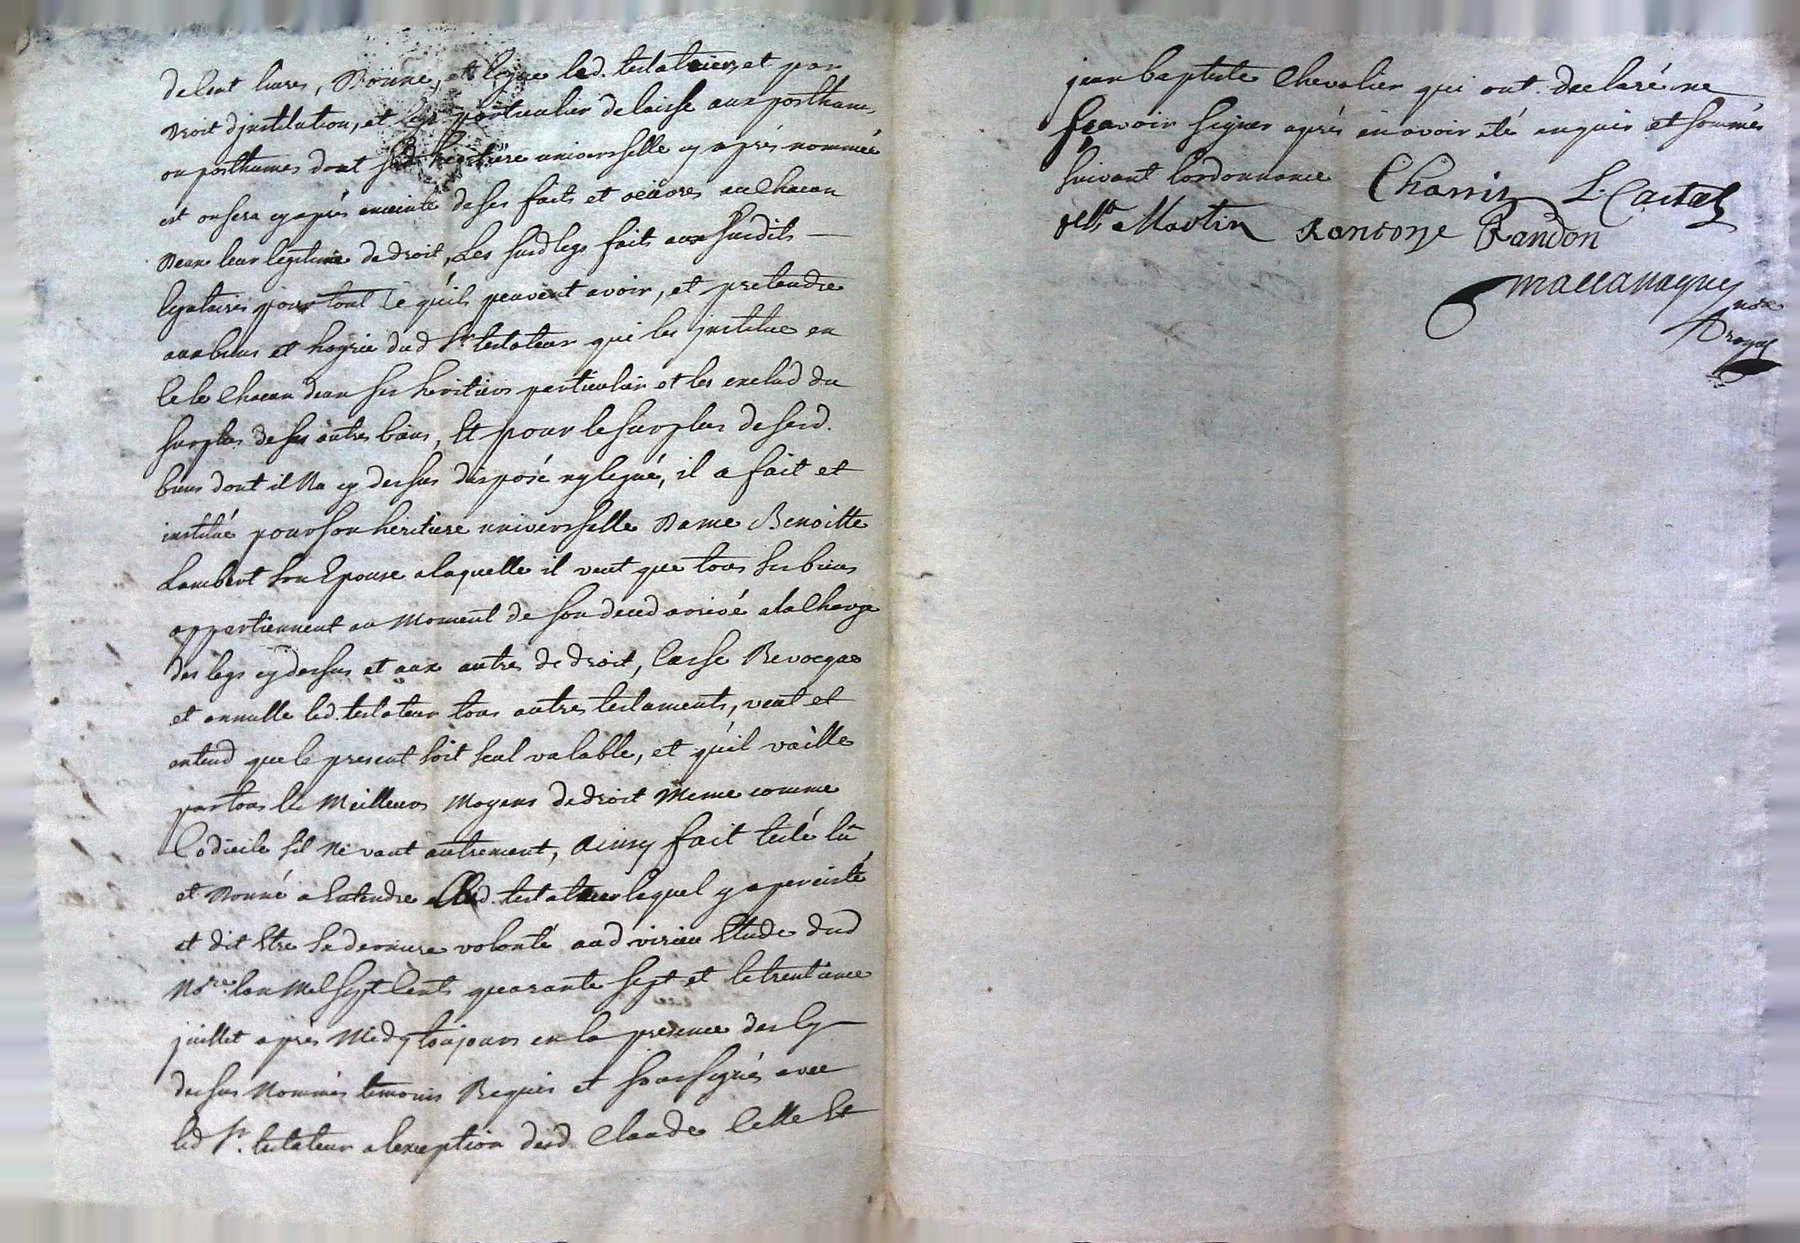 de cent livres, Donne, et legue led. testateur, et par
Droit d'institution, et legs particulier delaisse aux posthume,
ou posthumes dont sad. heritiere universelle cy après nommée
est ou sera cy après enceinte de ses faits et oeuvres au Chacun
Deux leur legitime de droit, Les susd legs faits aux susdits
legataires pour tout ce qu'ils peuvent avoir, et pretendre
aux biens et hoyrie dud Sr. testateur qui les institue en
ce le Chacun deux ses heritiers particulier et les exclud du
surplus de ses autres biens, Et pour le surplus de sesd.
biens dont il Na cy dessus disposé ny legué, il a fait et
institué pour son heritiere universelle Dame Benoitte
Lambert son Epouse a laquelle il veut que tous ses biens
appartiennent au Moment de son deced arrivé a la Charge
des legs cy dessus et aux autres de droit, Casse Revocque
et annulle led. testateur tous autres testaments, veut et
entend que le present soit seul valable, et qu'il vaille
par tous les Meilleurs Moyens de droit Meme comme
Codicile sil Ne vaut autrement, Ainsy fait testé lû
et Donné a Entendre aud. testateur lequel y a perciste
et dit Etre sa derniere volonté aud virieu Etude dud
Nore. lan Mil Sept Cents quarante sept et le trentieme
juillet après Midy toujours en la presence des Cy
dessus Nommés temoins Requis et soussignés avec
led Sr. testateur a lexception desd. Claude Celle Et
jean baptiste Chevalier qui ont declaré ne
sçavoir signer après en avoir eté enquis et sommés
suivant l'ordonnance Charrin L. Castel
Martin Randon
mallanaguy nore
royal